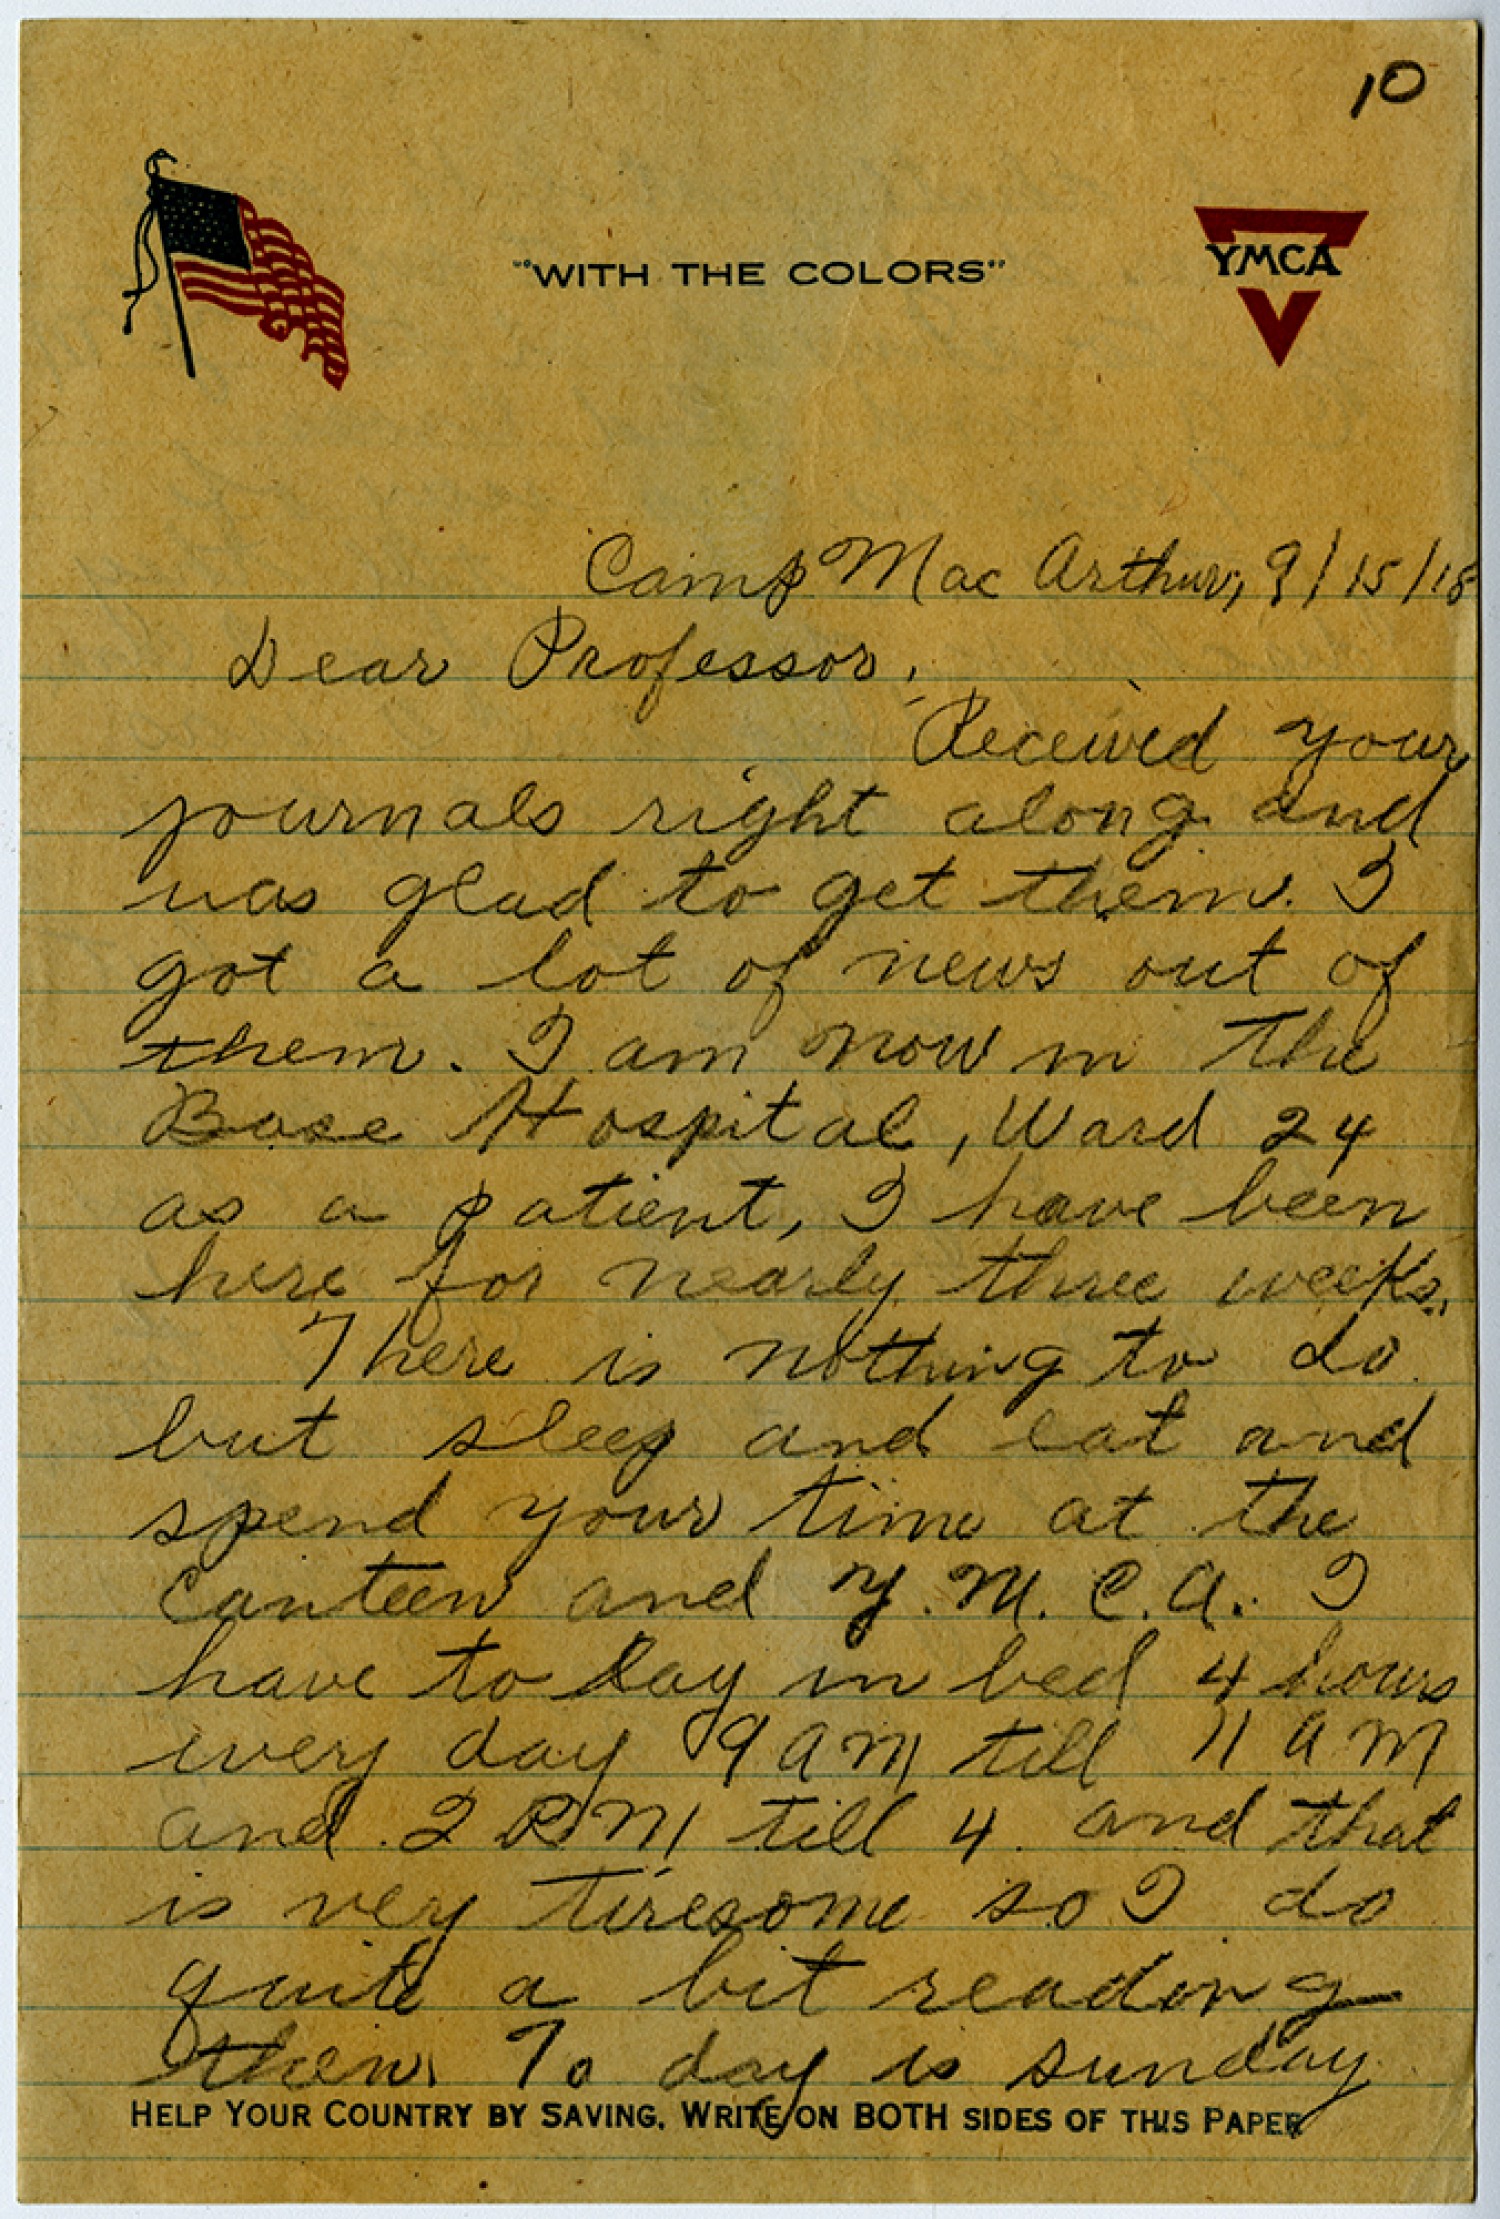 10
"WITH THE COLORS"
YMCA
Camp Mac Arthur, 9/15/18
Dear Professor,
Received your
journals right along and
was glad to get them. I
got a lot of news out of
them. I am now in the
Base Hospital, Ward 24
as a patient, I have been
here for nearly three weeks.
There is nothing to do
but sleep and eat and
spend your time at the
Canteen and Y.M.C.A. I
have to lay in bed 4 hours
every day 9 AM till 11 AM
and 2 PM till 4 and that
is very tiresome so I do
quite a bit reading
then. To day is sunday
HELP YOUR COUNTRY BY SAVING. WRITE ON BOTH SIDES OF THIS PAPER